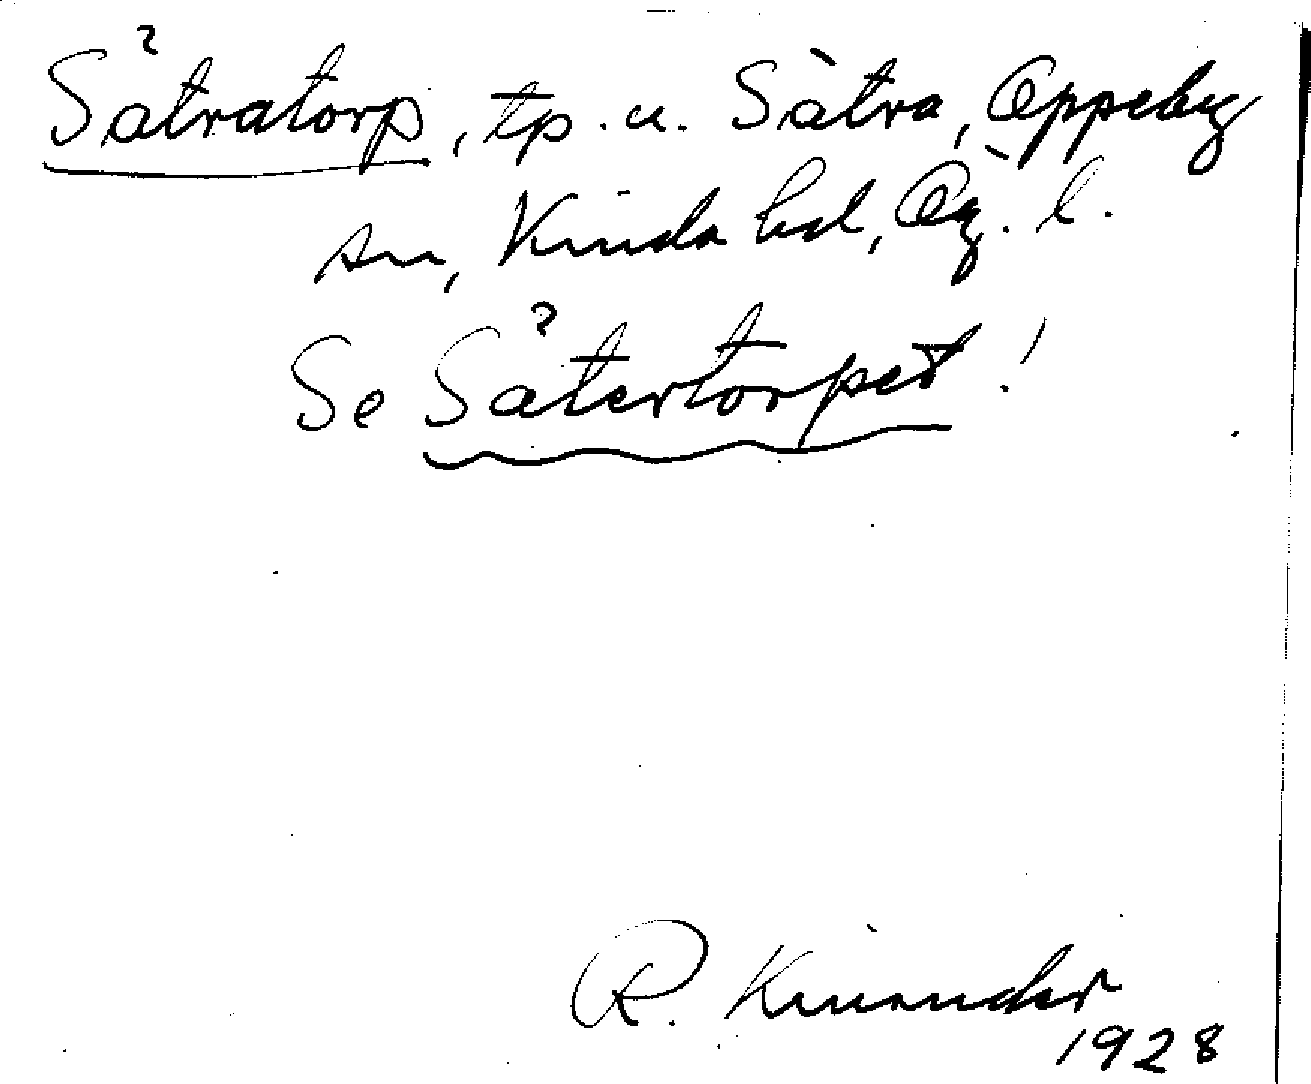 Såtratorp, tp. u. Såtra, Oppeby
sn, Kinda hd, Ög. l.
Se Såtertorpet!
R. Kinander
1928